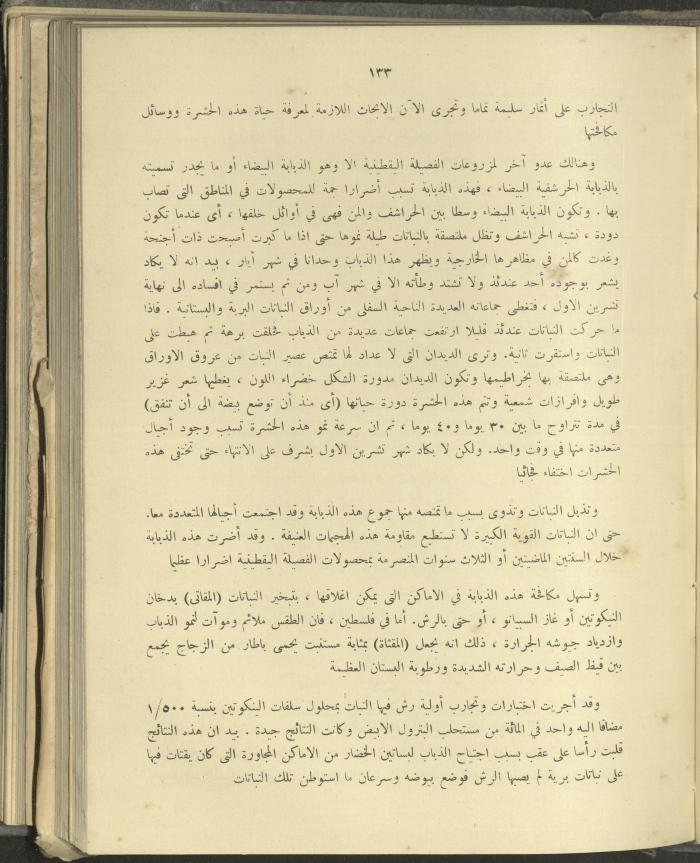 ١٣٣
التجارب على أثمار سليمة تماما وتجرى الآن الابحاث اللازمة لمعرفة حياة هذه الحشرة ووسائل
مكافحتها
وهنالك عدو آخر لمزروعات الفصيلة اليقطينية الا وهو الذبابة البيضاء أو ما يجدر تسميته
بالذبابة الحرشفية البيضاء ، فهذه الذبابة تسبب أضرارا جمة للمحصولات في المناطق التى تصاب
بها . وتكون الذبابة البيضاء وسطا بين الحراشف والمن فهى في أوائل خلقها ، أى عندما تكون
دودة ، تشبه الحراشف وتظل ملتصقة بالنباتات طيلة نموها حتى اذا ما كبرت أصبحت ذات أجنحة
وغدت كالمن في مظاهرها الخارجية ويظهر هذا الذباب وحدانا في شهر أيار ، بيد انه لا يكاد
يشعر بوجوده أحد عندئذ ولا تشتد وطأته الا في شهر آب ومن ثم يستمر في افساده الى نهاية
تشرين الاول ، فتغطى جماعاته العديدة الناحية السفلى من أوراق النباتات البرية والبستانية . فاذا
ما حركت النباتات عندئذ قليلا ارتفعت جماعات عديدة من الذباب فحلقت برهة ثم هبطت على
النباتات واستقرت ثانية. وترى الديدان التى لا عداد لها تمتص عصير النبات من عروق الاوراق
وهى ملتصقة بها بخراطيمها وتكون الديدان مدورة الشكل خضراء اللون ، يغطيها شعر غزير
طويل وافرازات شمعية وتتم هذه الحشرة دورة حياتها (أى منذ أن توضع بيضة الى أن تنفق)
في مدة تتراوح ما بين ٣٠ يوما و٤٠ يوما ، ثم ان سرعة نمو هذه الحشرة تسبب وجود أجيال
متعددة منها في وقت واحد. ولكن لا يكاد شهر تشرين الاول يشرف على الانتهاء حتى تختفى هذه
الحشرات اختفاء فجائيا
وتذبل النباتات وتذوى بسبب ما تمتصه منها جموع هذه الذبابة وقد اجتمعت أجيالها المتعددة معا.
حتى ان النباتات القوية الكبيرة لا تستطيع مقاومة هذه الهجمات العنيفة . وقد أضرت هذه الذبابة
خلال السنتين الماضيتين أو الثلاث سنوات المنصرمة بمحصولات الفصيلة اليقطينية اضرارا عظيما
وتسهل مكافحة هذه الذبابة في الاماكن التى يمكن اغلاقها ، بتبخير النباتات (المقاثى) بدخان
النيكوتين أو غاز السيانو ، أو حتى بالرش. أما في فلسطين ، فان الطقس ملائم وموآت لنمو الذباب
وازدياد جيوشه الجرارة ، ذلك انه يجعل (المقثاة) بمثابة مستنبت يحمى باطار من الزجاج يجمع
بين قيظ الصيف وحرارته الشديدة ورطوبة البستان العظيمة
وقد أجريت اختبارات وتجارب أولية رش فيها النبات بمحلول سلفات الينكوتين بنسبة ١/٥٠٠
مضافا اليه واحد في المائة من مستحلب البترول الابيض وكانت النتائج جيدة . بيد ان هذه النتائج
قلبت رأسا على عقب بسبب اجتياح الذباب لبساتين الخضار من الاماكن المجاورة التى كان يقتات فيها
على نباتات برية لم يصبها الرش فوضع بيوضه وسرعان ما استوطن تلك النباتات